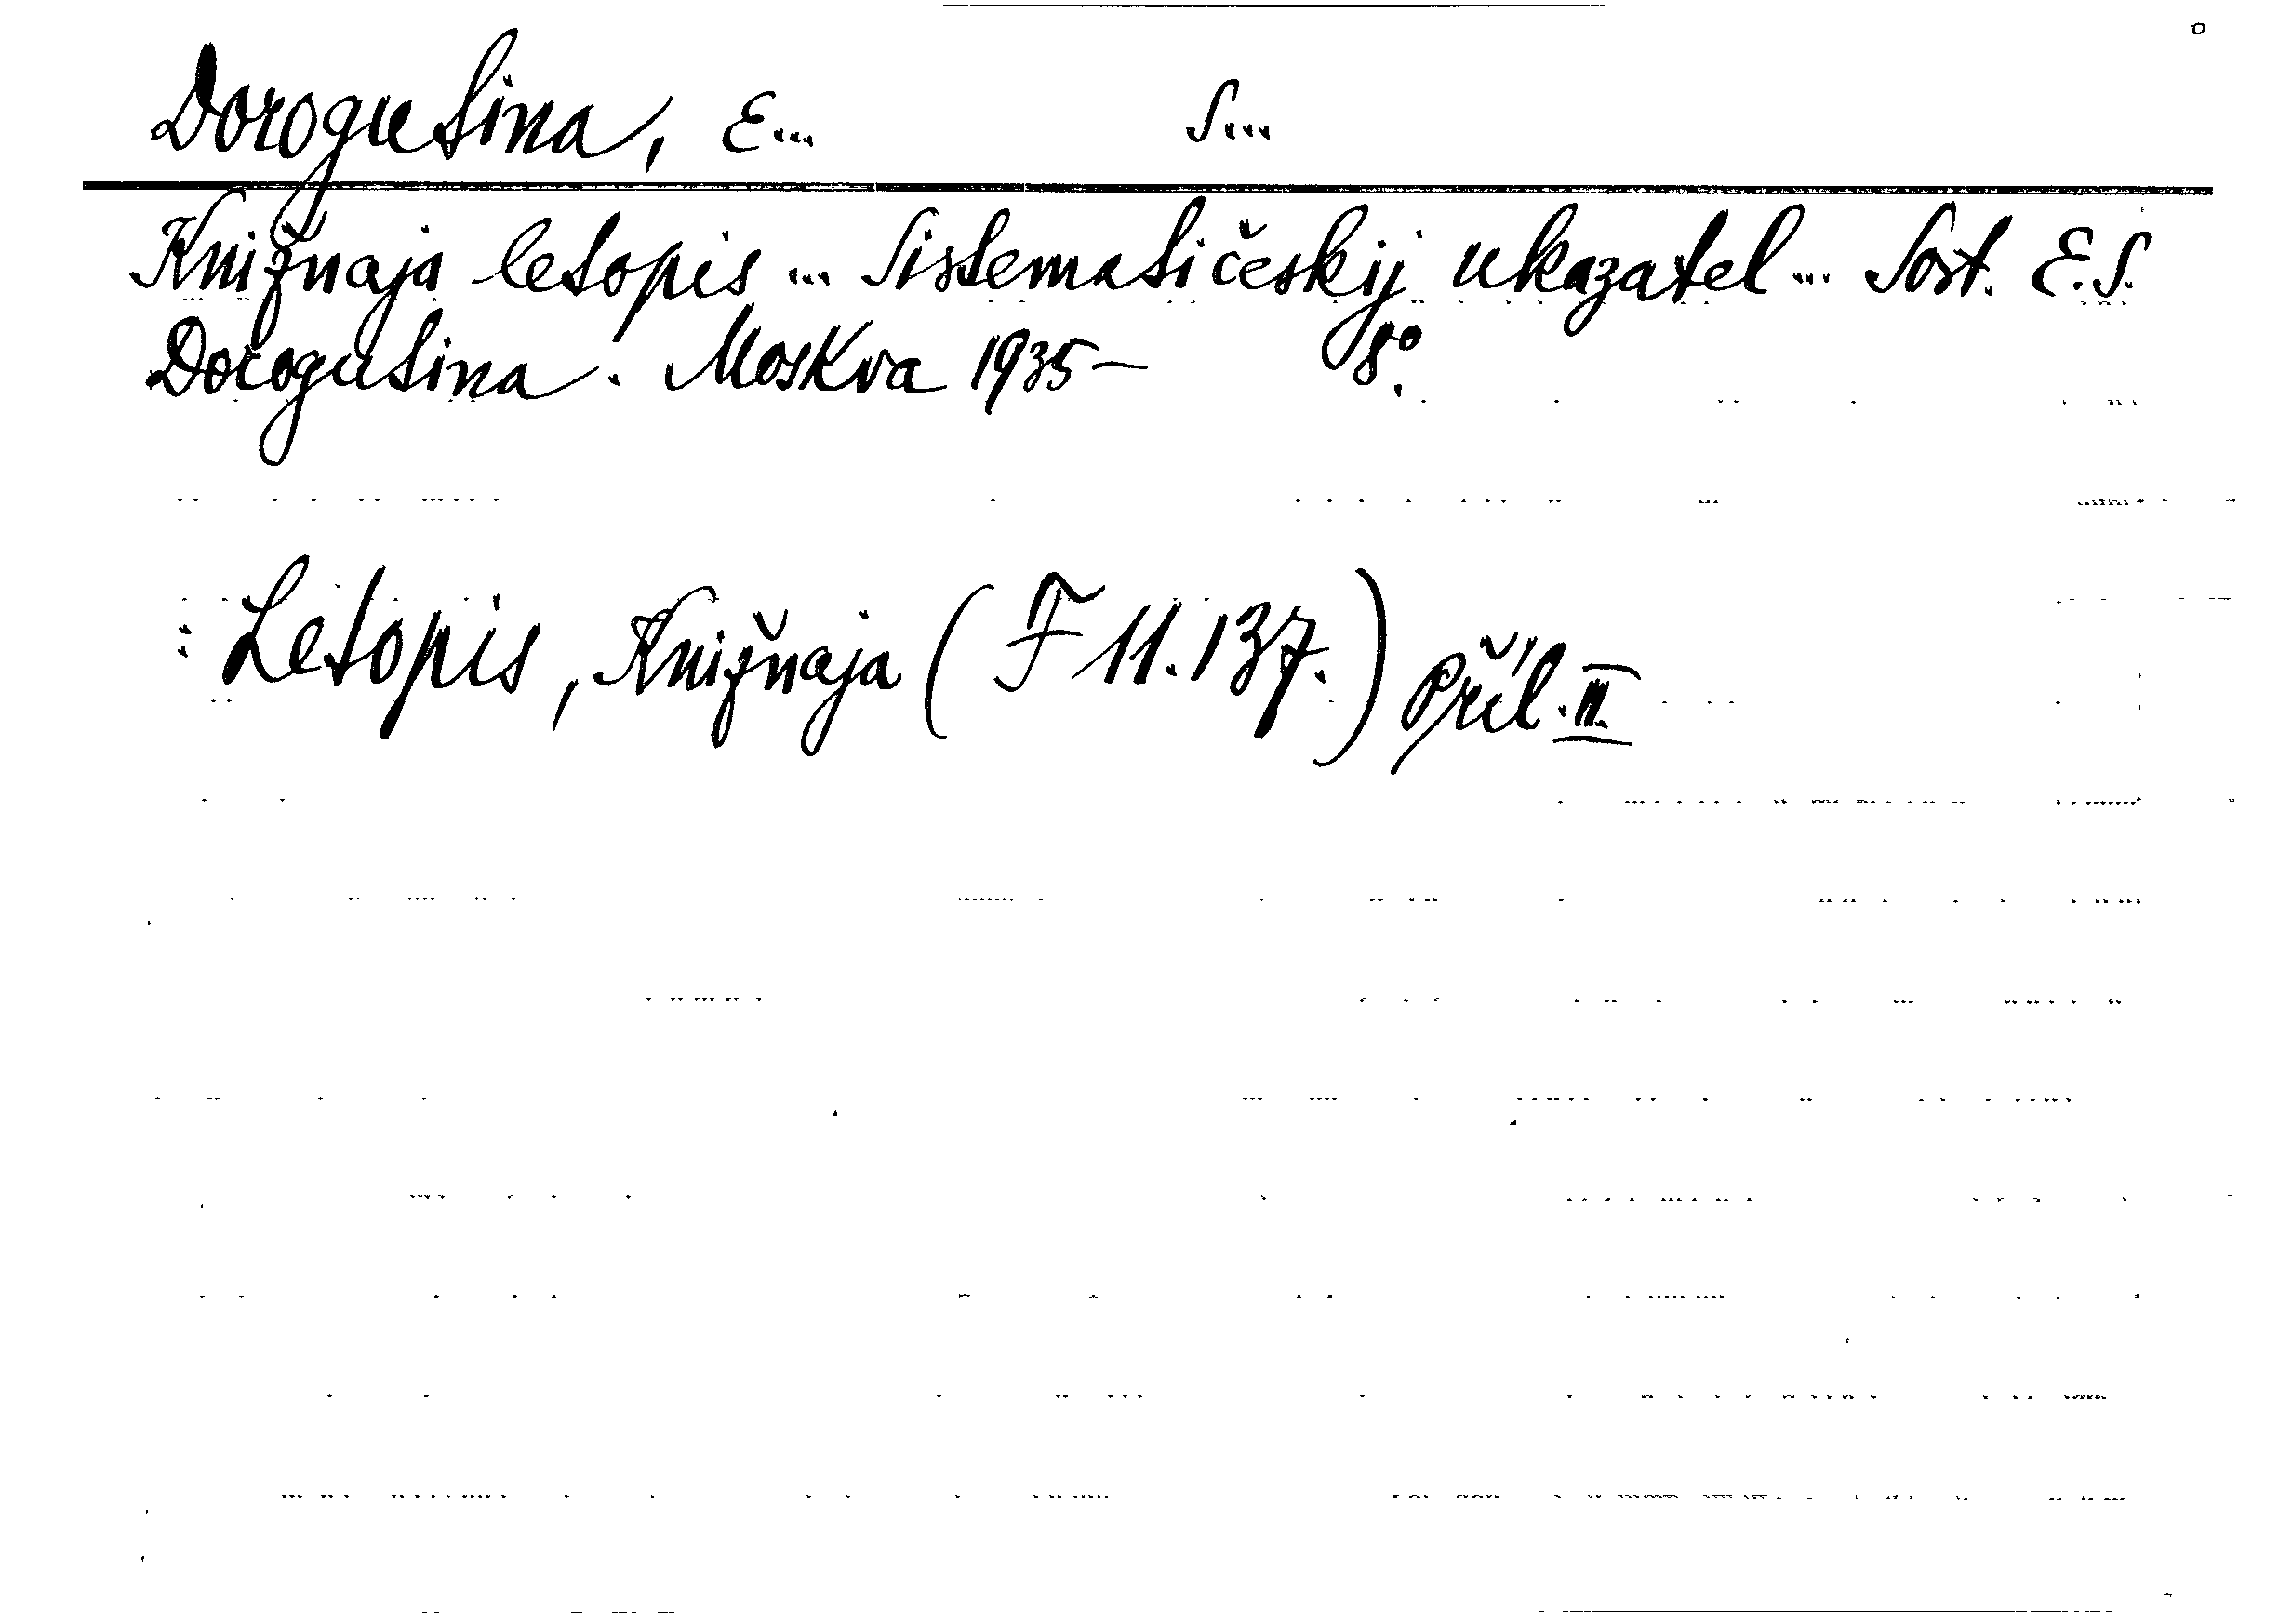 Dorogutina, E... S...
Knižnaja letopis ... Sistematičeskij ukazatel ... Sost. E.S.
Dorogutina. Moskva 1935- 8°.
: Letopis, Knižnaja (F 11.137.) Příl. II